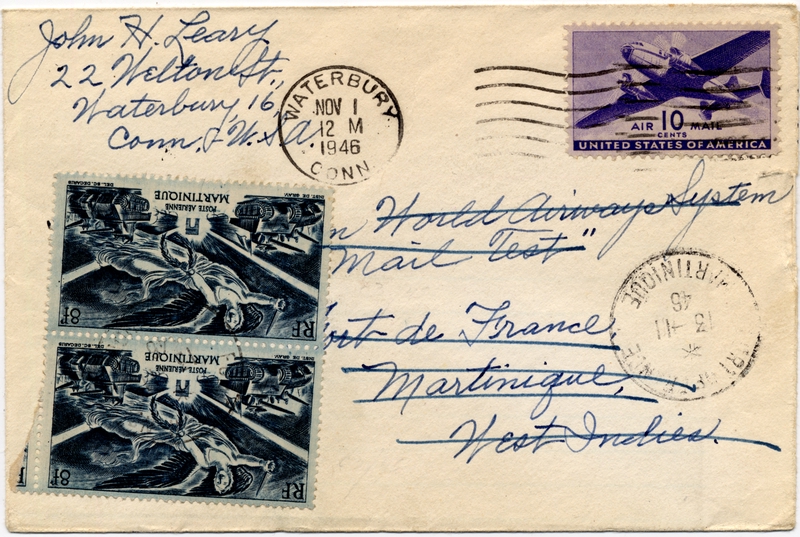 John H. Leary
22 Welton St.,
Waterbury 16,
Conn., U.S.A.
WATERBURY
NOV 1
12 M
1946
CONN.
AIR 10 MAIL
CENTS
UNITED STATES OF AMERICA
World Airways System
Mail Test"
de France
Martinique,
West Indies.
MARTINIQUE
46
13 -11
*
RF
8F
POSTE AÉRIENNE
MARTINIQUE
RF
8F
POSTE AÉRIENNE
MARTINIQUE